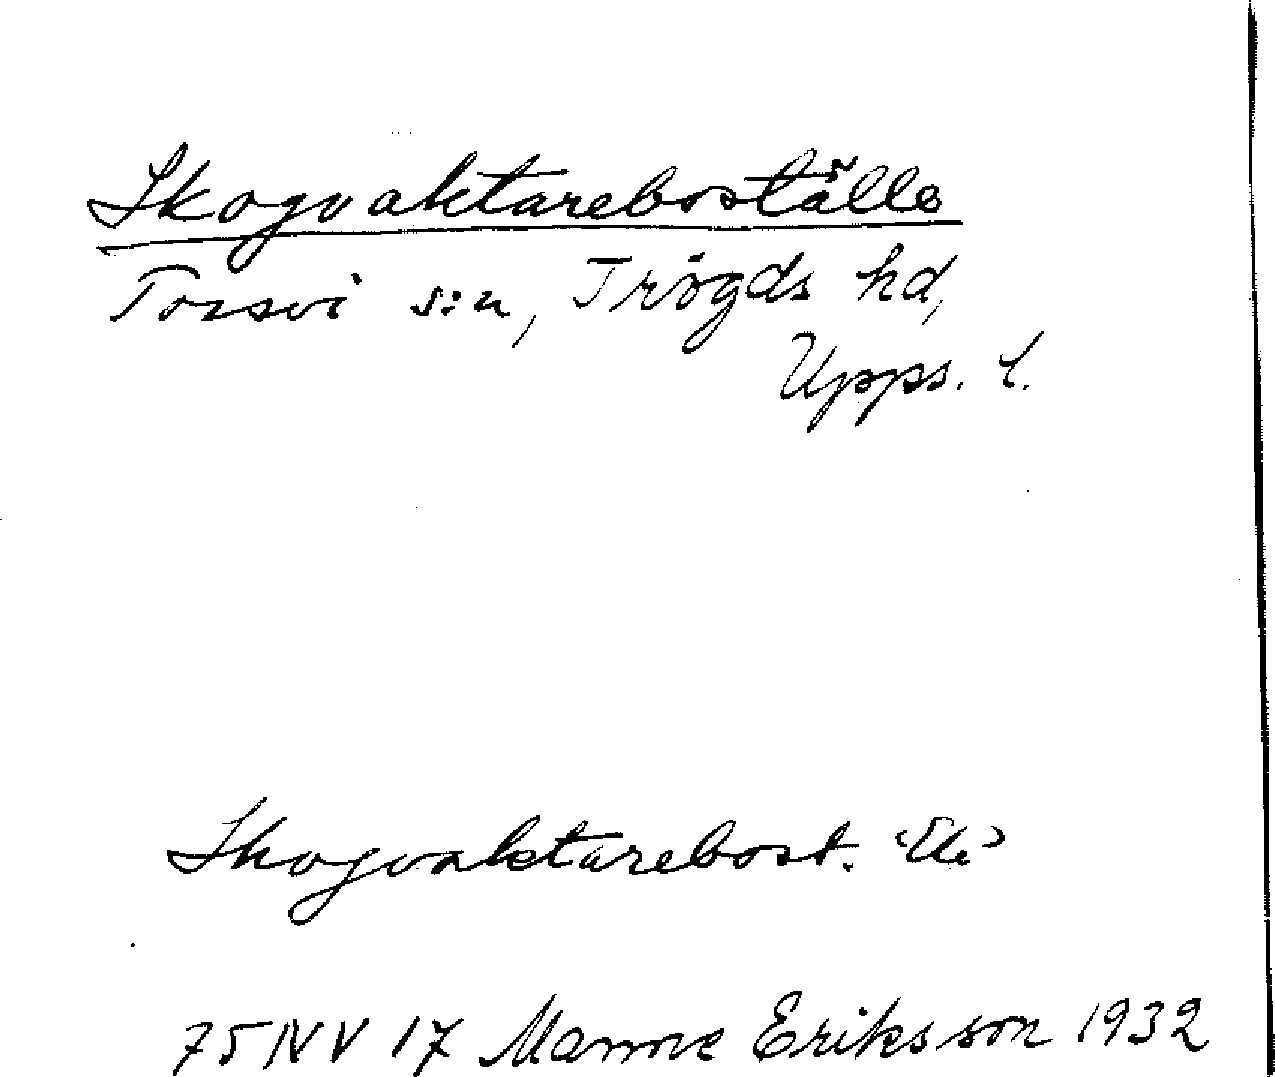 Skogvaktareboställe
Torsvi s:n, Trögds hd,
Upps. l.
Skogvaktarebost. ‹Ek›
75 NV 17 Manne Eriksson 1932